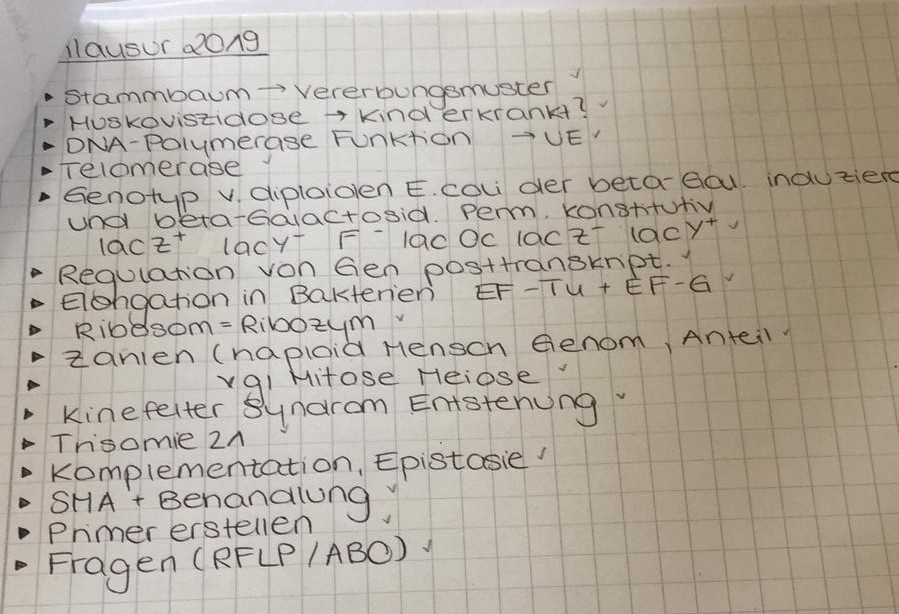 Klausur 2019
• Stammbaum → Vererbungsmuster ✓
• Muskoviszidose → Kind erkrankt? ✓
• DNA-Polymerase Funktion → UE ✓
• Telomerase ✓
• Genotyp v. diploiden E. coli der beta-Gal. induziert
und beta-Galactosid. Perm. konstitutiv
lac z⁺ lac y⁻ F⁻ lac Oc lac z⁻ lac y⁺ ✓
• Regulation von Gen posttranskript. ✓
• Elongation in Bakterien EF-Tu + EF-G ✓
• Ribosom = Ribozym ✓
• Zahlen (haploid Mensch Genom, Anteil ✓
• vgl Mitose Meiose ✓
• Kinefelter Syndrom Entstehung ✓
• Trisomie 21 ✓
• Komplementation, Epistasie ✓
• SMA + Behandlung ✓
• Primer erstellen ✓
• Fragen (RFLP / ABO) ✓